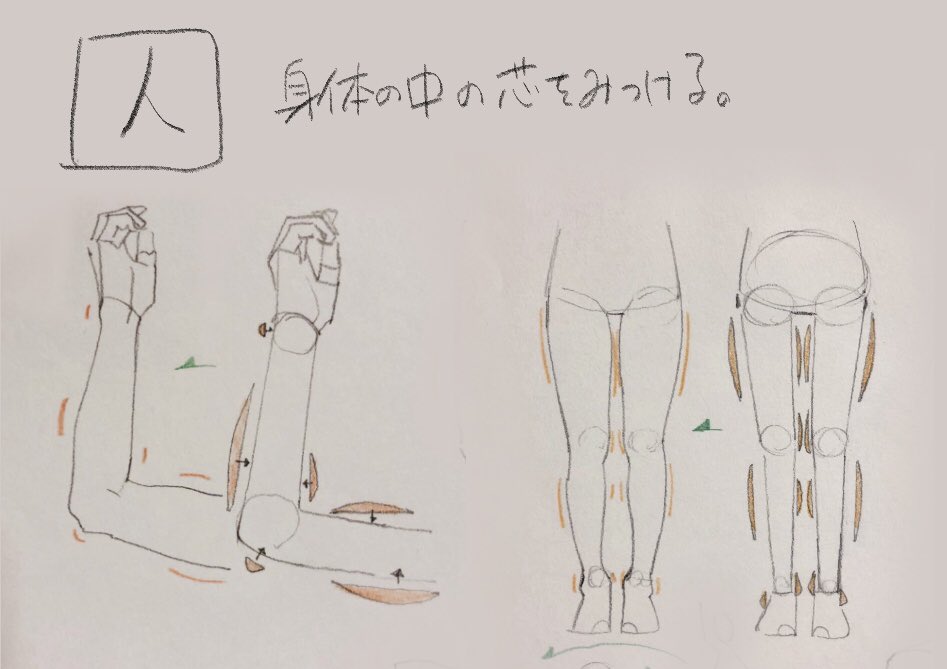 人
身体の中の芯をみつける。